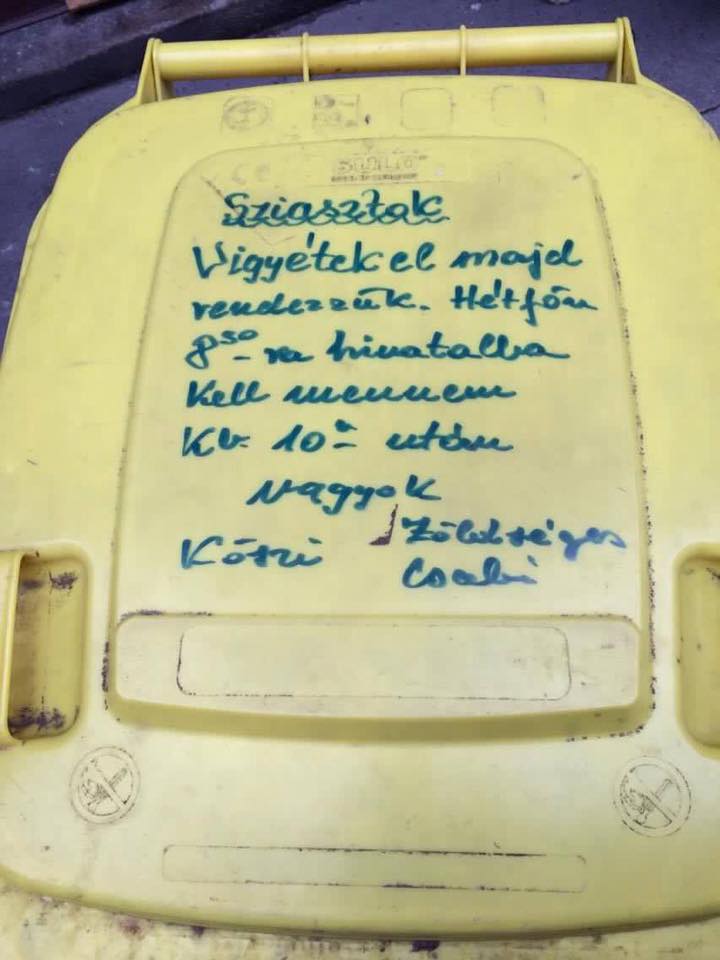 Sziasztok
Vigyétek el majd
rendezzük. Hétfőn
8³⁰-ra hivatalba
Kell mennem
Kb. 10- után
vagyok
Köszi Zöldséges
Csabi